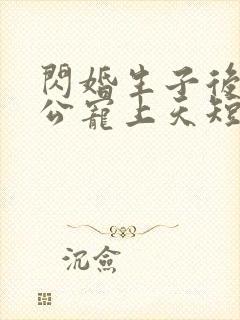 閃婚生子後
公寵上天短
沉僉